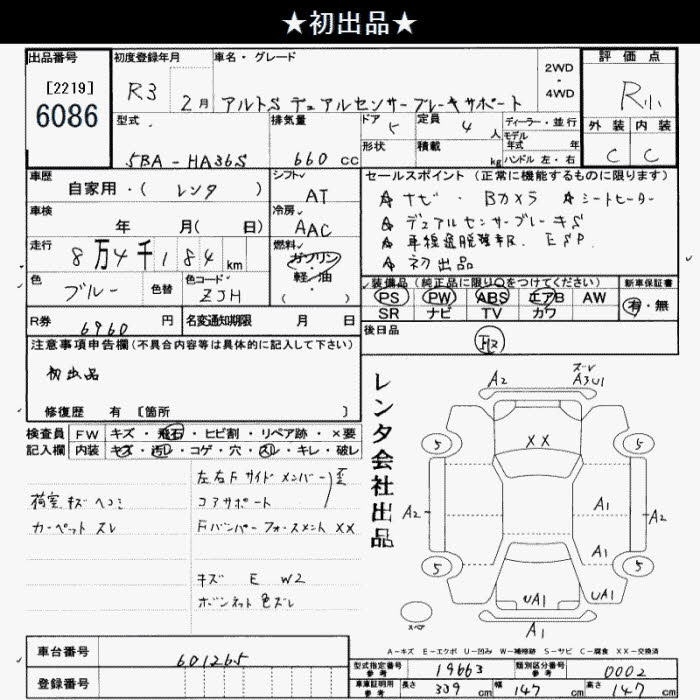 ★初出品★
出品番号
[2219]
6086
初度登録年月
R3 2月
車名・グレード
アルトS デュアルセンサーブレーキサポート
2WD
・
4WD
評価点
R小
型式
5BA-HA36S
排気量
660 cc
ドア 5
定員 4 人
形状
積載 kg
ディーラー・並行
モデル年式 年
ハンドル 左・右
外装 内装
C C
車歴
自家用・(レンタ)
シフト
AT
車検 年 月(日)
冷房
AAC
走行
8万4千184 km
燃料
ガソリン
軽/油
( )
色
ブルー
色替
色コード
ZJH
R券 6960 円
名変通知期限 月 日
セールスポイント(正常に機能するものに限ります)
☆ナビ・Bカメラ ☆シートヒーター
☆デュアルセンサーブレーキS
☆車線逸脱警報. ESP.
☆初出品
装備品(純正品に限り○をつけてください)
新車保証書
PS PW ABS エアB AW
SR ナビ TV カワ
有・無
後日品
注意事項申告欄(不具合内容等は具体的に記入して下さい)
初出品
修復歴 有 [箇所 ]
検査員
記入欄
FW キズ・飛石・ヒビ割・リペア跡・×要
内装 キズ・汚レ・コゲ・穴・スレ・キレ・破レ
荷室キズヘコミ
カーペットスレ
左右Fサイドメンバー歪
コアサポート
Fバンパーフォースメント XX
キズ E W2
ボンネット色ズレ
レンタ会社出品
A2
ズレ
A3U1
XX
5
5
A2
A1
A2
A1
5
5
UA1
UA1
A1
スペア
A-キズ E-エクボ U-凹み W-補修跡 S-サビ C-腐食 XX-交換済
車台番号 601265
登録番号
型式指定番号
参考
19663
類別区分番号
参考
0002
車庫証明用
参考
長さ 339 cm
幅 147 cm
高さ 147 cm